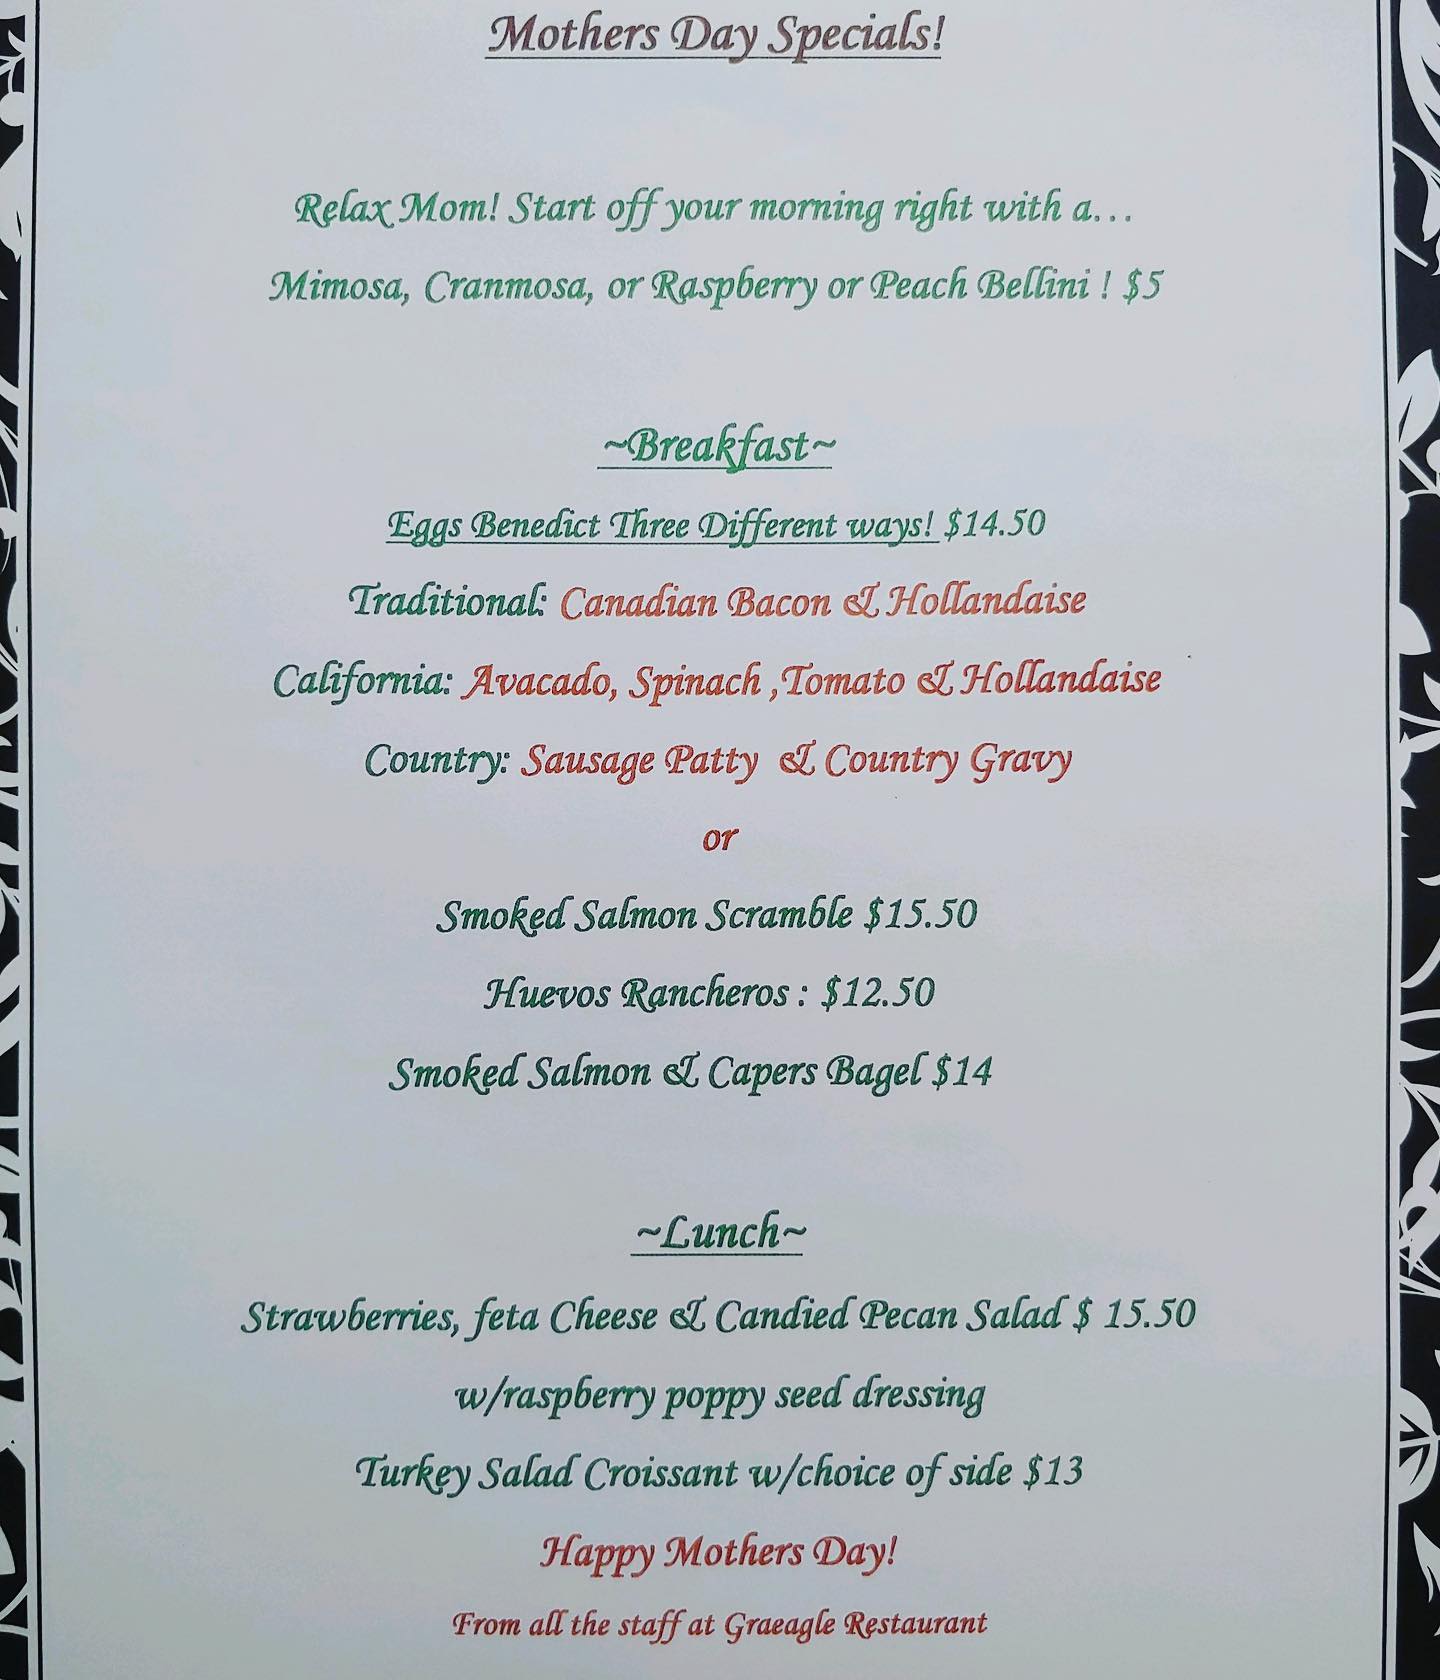 Mothers Day Specials!
Relax Mom! Start off your morning right with a...
Mimosa, Cranmosa, or Raspberry or Peach Bellini ! $5
~Breakfast~
Eggs Benedict Three Different ways! $14.50
Traditional: Canadian Bacon & Hollandaise
California: Avacado, Spinach ,Tomato & Hollandaise
Country: Sausage Patty & Country Gravy
or
Smoked Salmon Scramble $15.50
Huevos Rancheros : $12.50
Smoked Salmon & Capers Bagel $14
~Lunch~
Strawberries, feta Cheese & Candied Pecan Salad $ 15.50
w/raspberry poppy seed dressing
Turkey Salad Croissant w/choice of side $13
Happy Mothers Day!
From all the staff at Graeagle Restaurant